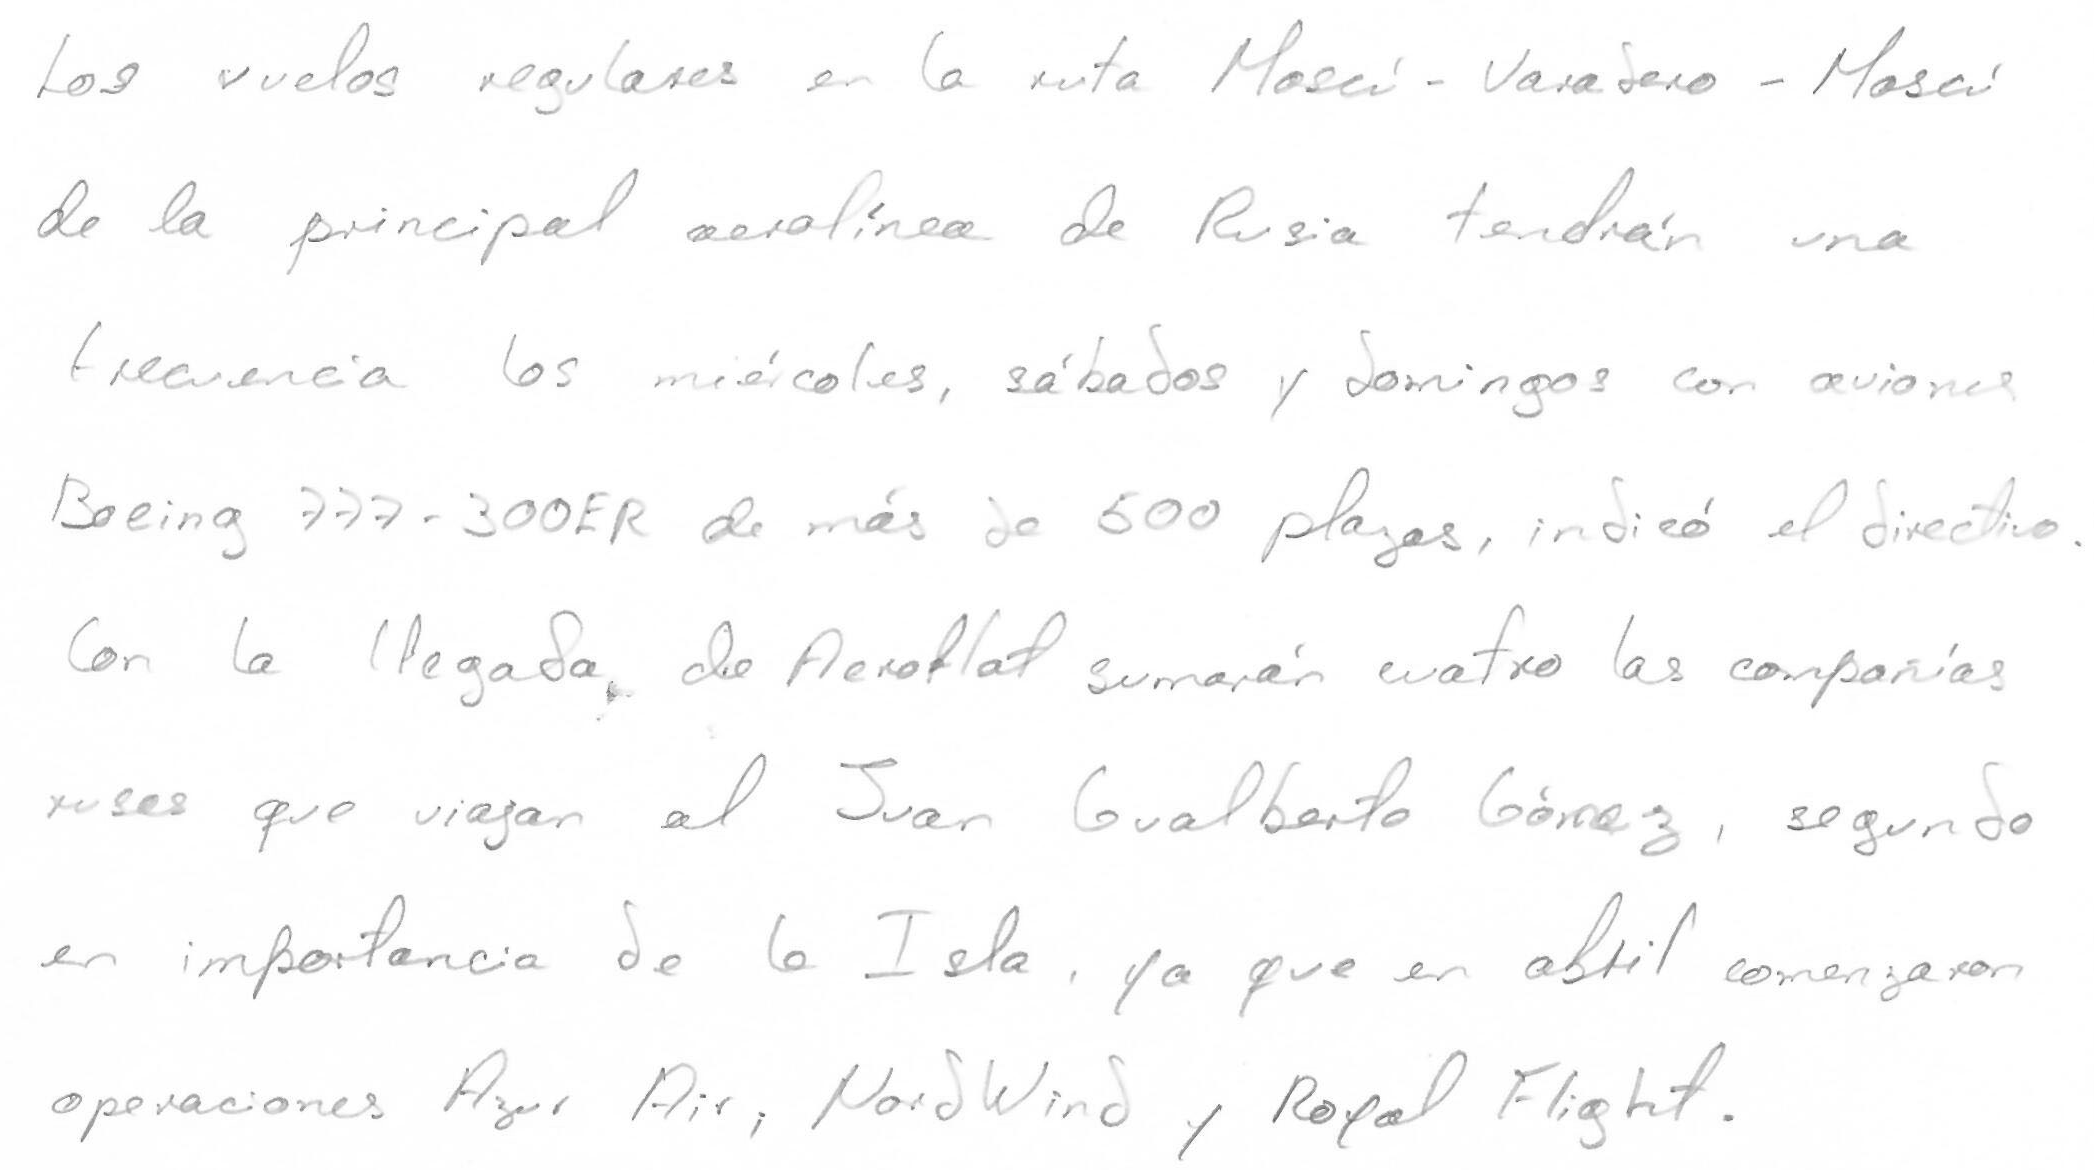 Los vuelos regulares en la ruta Moscú - Varadero - Moscú
de la principal aerolínea de Rusia tendrán una
frecuencia los miércoles, sábados y domingos con aviones
Boeing 777-300ER de más de 500 plazas, indicó el directivo.
Con la llegada de Aeroflat sumarán cuatro las compañías
rusas que viajan al Juan Gualberto Gómez, segundo
en importancia de la Isla, ya que en abril comenzaron
operaciones Azur Air, NordWind y Royal Flight.